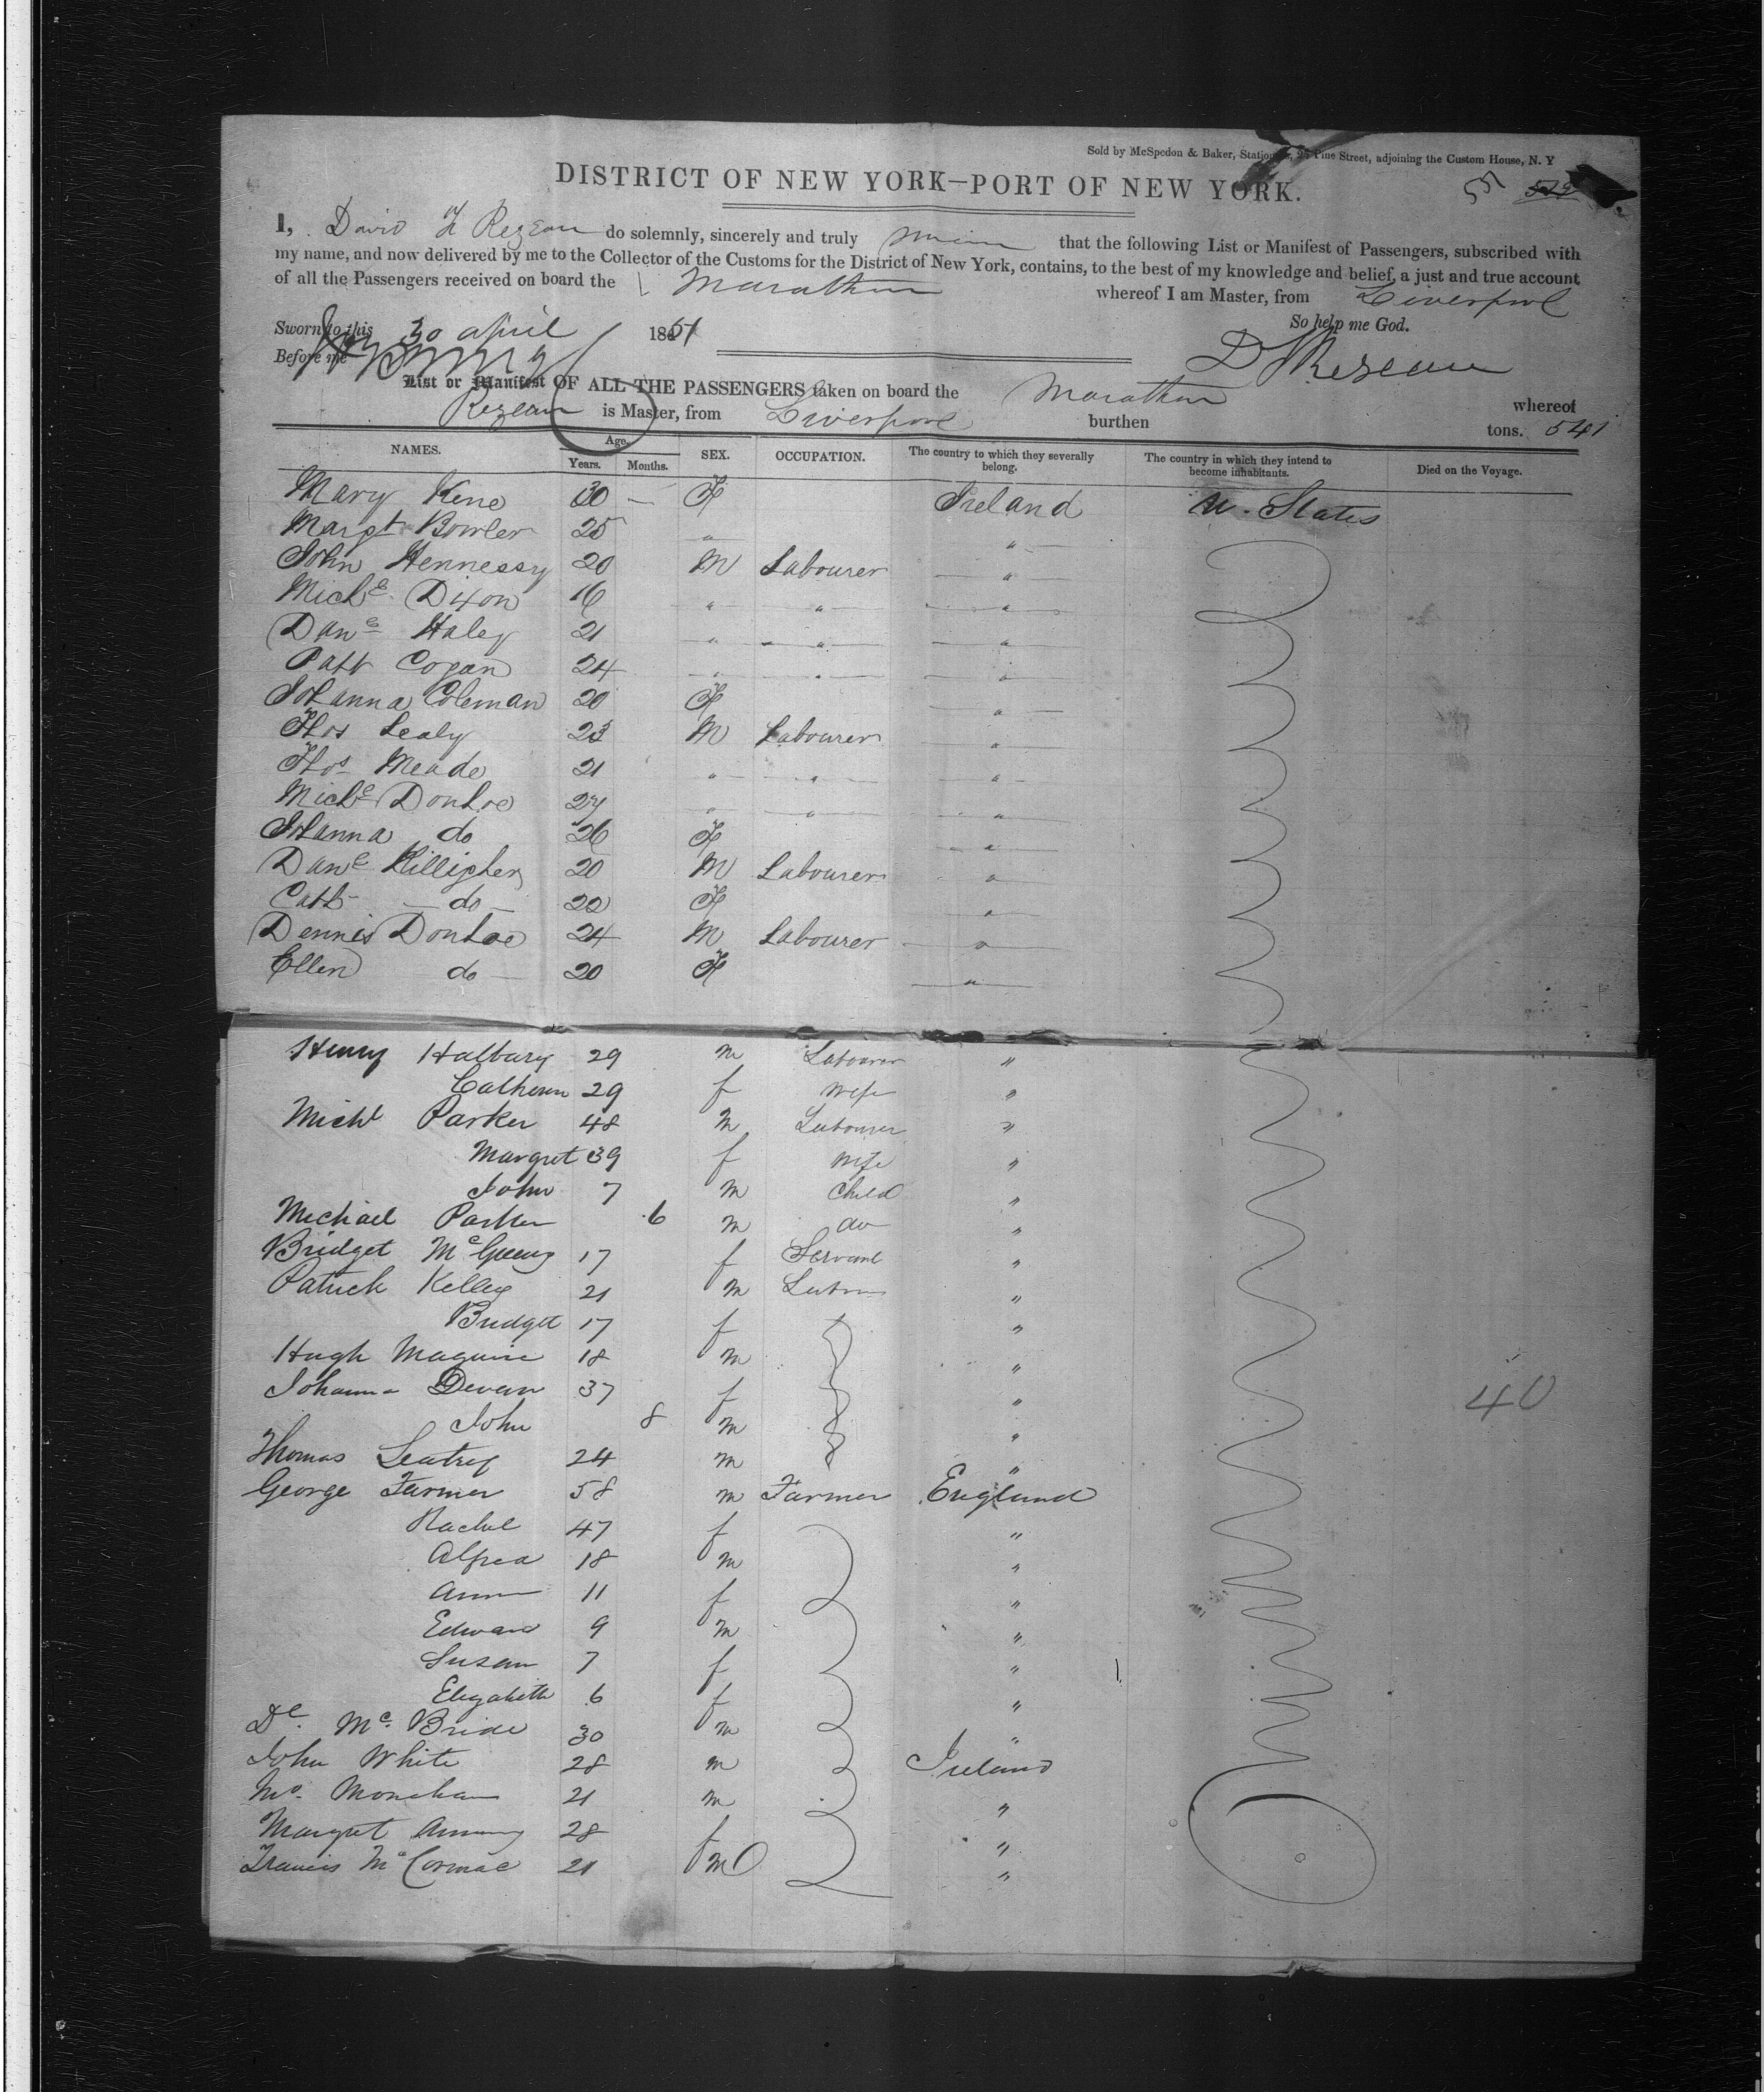 Sold by McSpedon & Baker, Stationers, 25 Pine Street, adjoining the Custom House, N. Y
DISTRICT OF NEW YORK—PORT OF NEW YORK.
I, David Rezeau do solemnly, sincerely and truly that the following List or Manifest of Passengers, subscribed with
my name, and now delivered by me to the Collector of the Customs for the District of New York, contains, to the best of my knowledge and belief, a just and true account
of all the Passengers received on board the Marathon whereof I am Master, from Liverpool
So help me God.
Sworn to this 30 april 1851
Before me
List or Manifest OF ALL THE PASSENGERS taken on board the Marathon whereof
Rezeau is Master, from Liverpool burthen tons. 541
NAMES. Age. Years. Months. SEX. OCCUPATION. The country to which they severally belong. The country in which they intend to become inhabitants. Died on the Voyage.
Mary Kene 30 — F Ireland U. States
Margt Bowler 25 " "
John Hennessy 20 M Labourer "
Michl Dixon 16 " " "
Danl Haley 21 " " "
Patt Cogan 24 " " "
Johanna Coleman 20 F "
Thos Lealy 23 M Labourer "
Thos Meade 21 " " "
Michl Donhoe 27 " " "
Johanna do 26 F "
Danl Killigher 20 M Labourer "
Cath do 20 F "
Dennis Donhoe 24 M Labourer "
Ellen do 20 F "
Henry Halbury 29 m Labourer "
29 f wife "
Michl Parker 48 m Labourer "
Margret 39 f wife "
John 7 m child "
Michael Parker 6 m do "
Bridget 17 f Servant "
Patrick Kelley 21 m "
Bridget 17 f "
Hugh Maguire 18 m "
Johanna Devan 37 f "
John 8 m "
40
Thomas 24 m "
George Farmer 58 m Farmer England
Rachel 47 f "
Alfred 18 m "
Ann 11 f "
Edward 9 m "
Susan 7 f "
Elizabeth 6 f "
McBride 30 m "
John White 28 m Ireland
21 m "
Margret 28 f "
Francis McCormac 21 m "